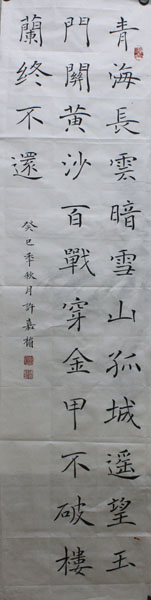 青海長雲暗雪山孤城遙望玉
門關黃沙百戰穿金甲不破樓
蘭終不還
癸巳季秋月許嘉